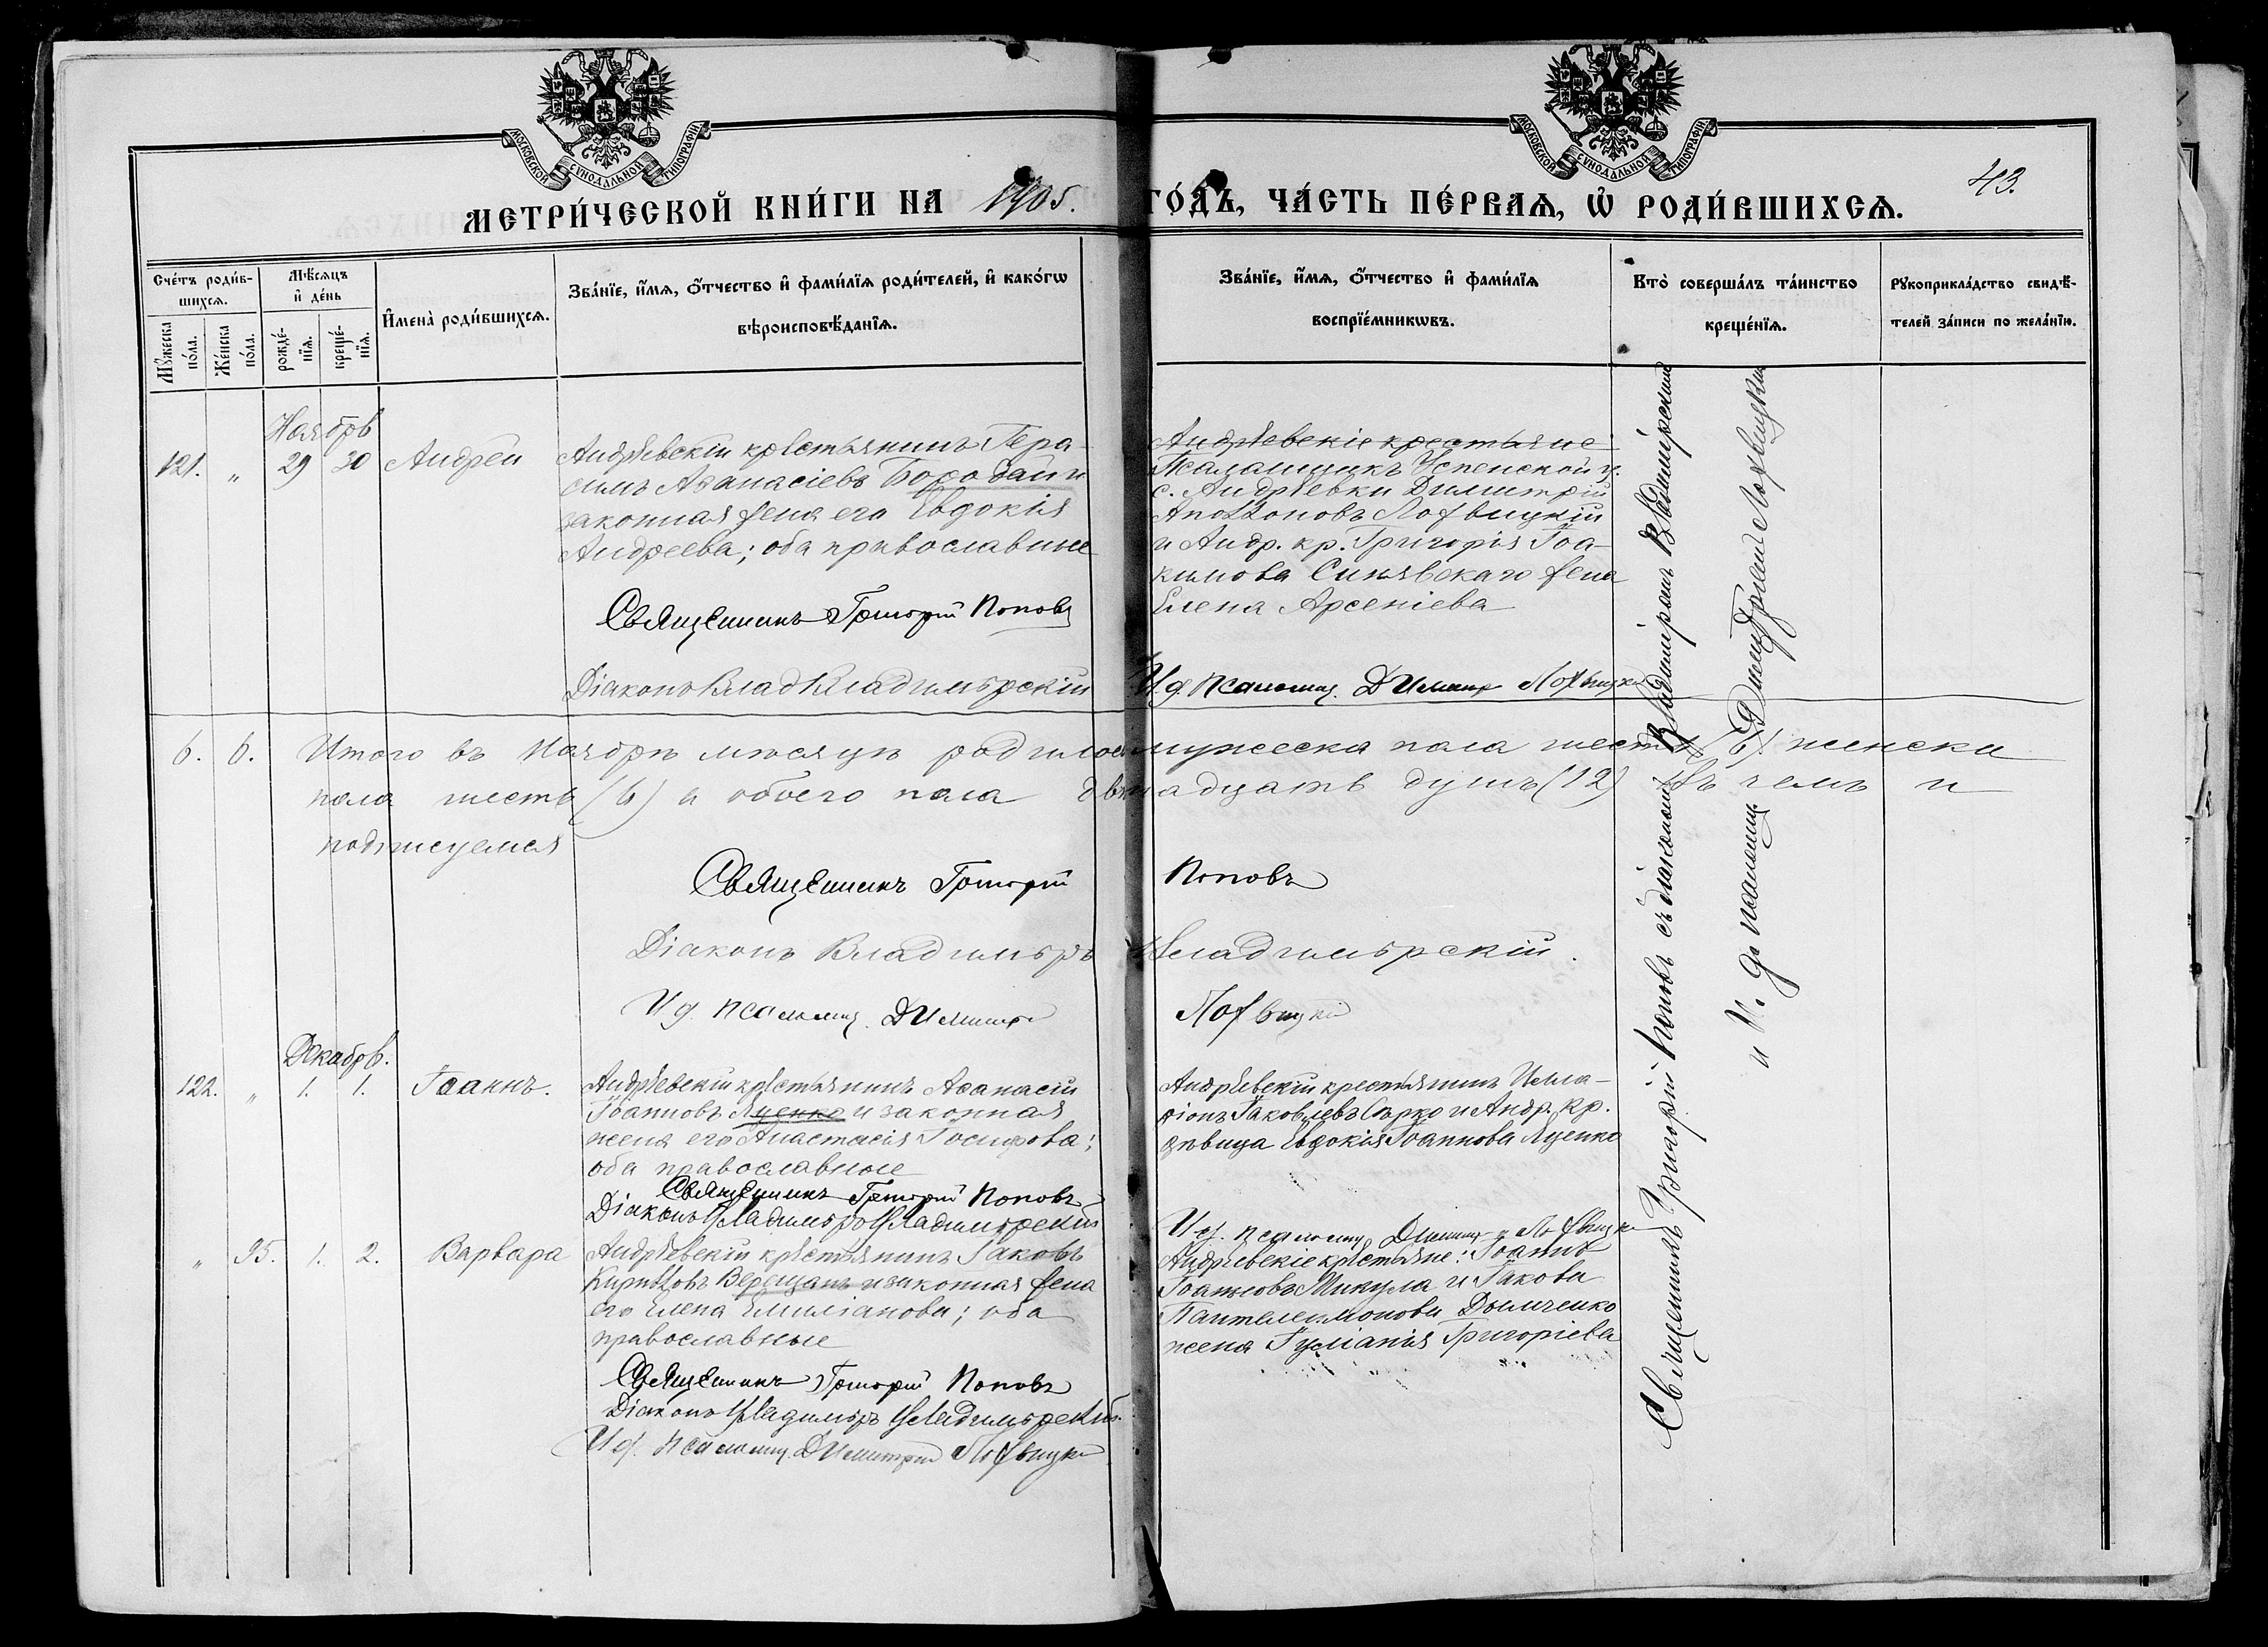 МОСКОВСКОЙ СѴНОДАЛЬНОЙ ТИПОГРАФІИ
МОСКОВСКОЙ СѴНОДАЛЬНОЙ ТИПОГРАФІИ
43.
МЕТРИ́ЧЕСКОЙ КНИ́ГИ НА 1905. ГО́ДЪ, ЧА́СТЬ ПЕ́РВАѦ, Ѡ҆ РОДИ́ВШИХСѦ.
Сче́тъ роди́в-
шихсѧ.
Мꙋ́жеска по́ла.
Же́нска по́ла.
Мѣ́сѧцъ
и҆ де́нь
рожде́-
нїѧ.
креще́-
нїѧ.
И҆мена̀ роди́вшихсѧ.
Зва́нїе, и҆́мѧ, ѻ҆́тчество и҆ фами́лїѧ роди́телей, и҆ како́гѡ
вѣроисповѣ́данїѧ.
Зва́нїе, и҆́мѧ, ѻ҆́тчество и҆ фами́лїѧ
воспрїе́мникѡвъ.
Кто̀ соверша́лъ та́инство
креще́нїѧ.
Рꙋкоприкла́дство свидѣ́-
телей за́писи по жела́нїю.
Ноябрь
121. „ 29 30 Андрей
Андрѣевскій крестьянинъ Гера-
симъ Аѳанасіевъ Бородай и
законная жена его Евдокія
Андреева; оба православные
Священникъ Григорій Поповъ
Діаконъ Влад Владимірскій
Андрѣевскіе крестьяне
Псаломщикъ Успенской ц.
с. Андрѣевки Димитрій
Аполлоновъ Лохвицкій
и Андр. кр. Григорія Іоа-
кимова Синявскаго жена
Елена Арсеніева
И. д. псаломщ. Димитр Лохвицкій
6. 6. Итого въ Ноябрѣ мѣсяцѣ родилось мужеска пола шесть (6) женска
пола шесть (6) а обоего пола двѣнадцать душъ (12) въ чемъ и
подписуемся
Священникъ Григорій Поповъ
Діаконъ Владиміръ Владимірскій.
И д. псаломщ. Димитрі Лохвицкій
Декабрь.
122. „ 1. 1. Іоаннъ.
Андрѣевскій крестьянинъ Аѳанасій
Іоанновъ Яценко и законная
жена его Анастасія Іосифова;
оба православные
Священникъ Григорій Поповъ
Діаконъ Владиміръ Владимірскій
Андрѣевскій крестьянинъ Илла-
ріонъ Іаковлевъ Сѣрко и Андр. кр.
дѣвица Евдокія Іоаннова Яценко
И д. псаломщ. Димитр Лохвицкі
„ 95. 1. 2. Варвара
Андрѣевскій крестьянинъ Іаковъ
Кирилловъ Верещакъ и законная жена
его Елена Емиліанова; оба
православные
Священникъ Григорій Поповъ
Діаконъ Владиміръ Владимірскій.
И д. псаломщ. Димитрій Лохвицкі
Андрѣевскіе крестьяне: Іоаннъ
Іоанновъ Микула и Іакова
Пантелеимонова Дымченко
жена Іуліанія Григоріева
Священникъ Григорій Поповъ съ діакономъ Владиміромъ Владимірскимъ
и И. д. псаломщ. Димитріемъ Лохвицкимъ